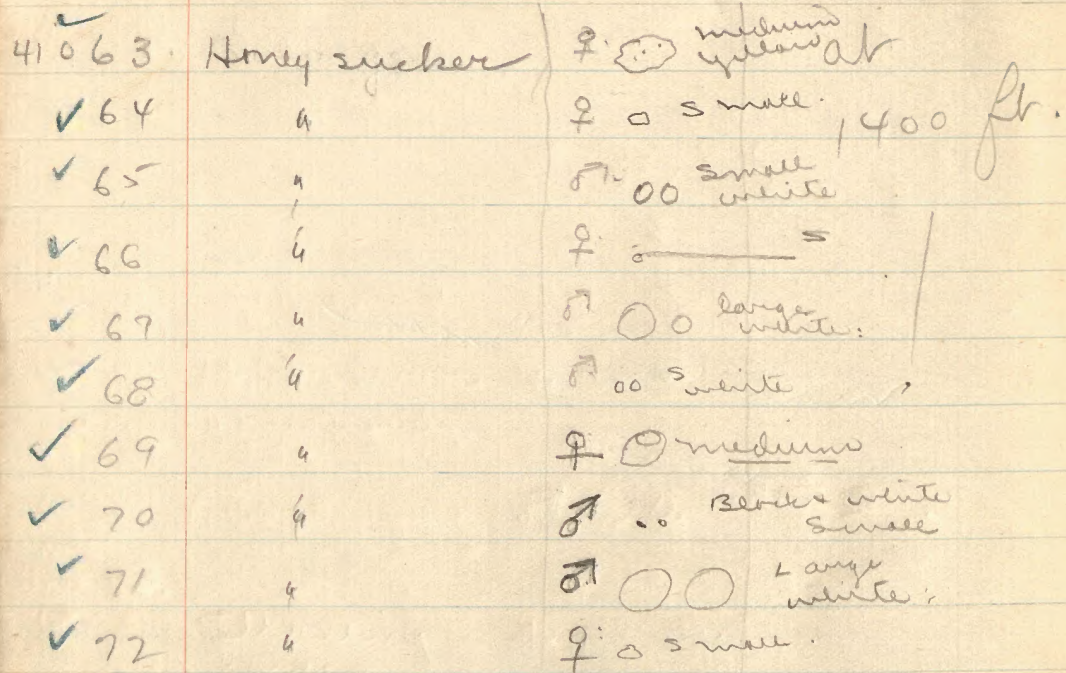 41063. Honey sucker ♀ medium yellow at
✓ 64 " ♀ small. 1400 ft.
✓ 65 " ♂ small white
✓ 66 " ♀ s
✓ 67 " ♂ large white.
✓ 68 " ♂ s white
✓ 69 " ♀ medium
✓ 70 " ♂ Black & white small
✓ 71 " ♂ Large white.
✓ 72 " ♀ small.